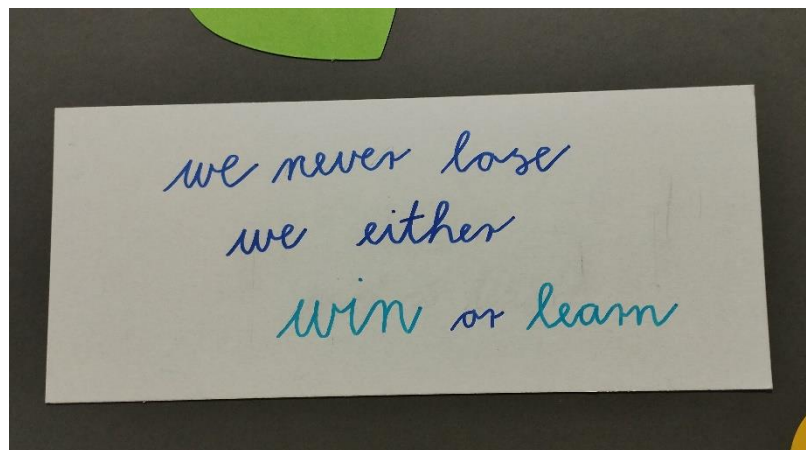 we never lose
we either
win or learn